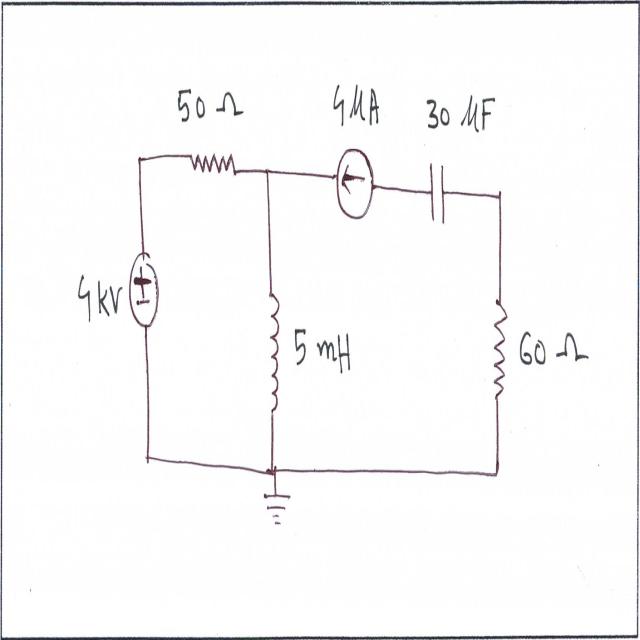 50 Ω
4 μA
30 μF
4 kV
+
-
5 mH
60 Ω